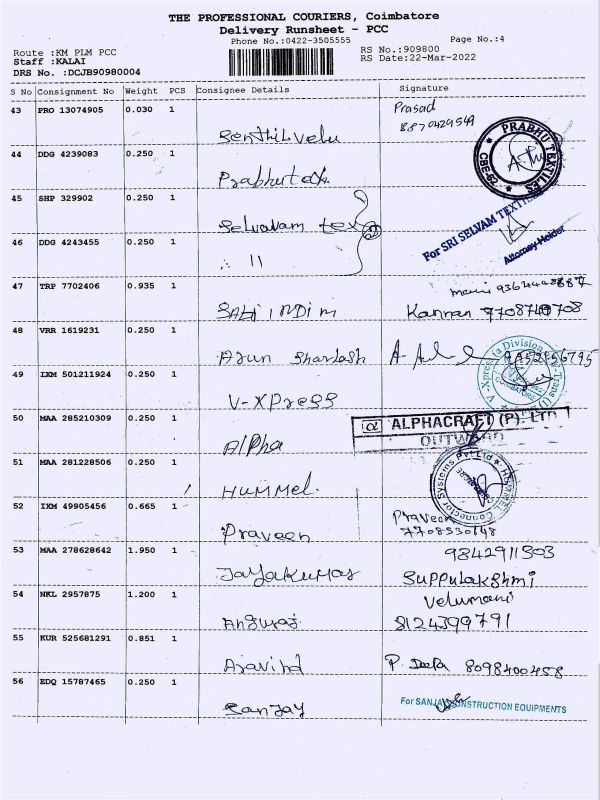 THE PROFESSIONAL COURIERS, Coimbatore
Delivery Runsheet - PCC
Phone No.:0422-3505555
Page No.:4
Route :KM PLM PCC
RS No.:909800
Staff :KALAI
RS Date:22-Mar-2022
DRS No. :DCJB90980004
S No Consignment No Weight PCS Consignee Details Signature
43 PRO 13074905 0.030 1 Prasad
Senthilvelu
44 DDG 4239083 0.250 1 PRABHU TEXTILES CBE-52
Prabhutex
45 SHP 329902 0.250 1
Selvavam tex
For SRI SELVAM TEXTILE
46 DDG 4243455 0.250 1 Attorney Holder
∴ 11
47 TRP 7702406 0.935 1
Kannan
48 VRR 1619231 0.250 1
Arun
49 IXM 501211924 0.250 1
V-XPress
50 MAA 285210309 0.250 1 ALPHACRAFT (P). LTD
OUTWARD
Alpha
51 MAA 281228506 0.250 1
HUMMEL.
Connector Systems Pvt Ltd
52 IXM 49905456 0.665 1 Praveen
Praveen
53 MAA 278628642 1.950 1 9842911303
Jayakumar Suppulakshmi
54 NKL 2957875 1.200 1 Velumani
Anguraj. 8124399791
55 KUR 525681291 0.851 1
Aravind P. Deepa 8098400458
56 EDQ 15787465 0.250 1
Sanjay
For SANJAY CONSTRUCTION EQUIPMENTS